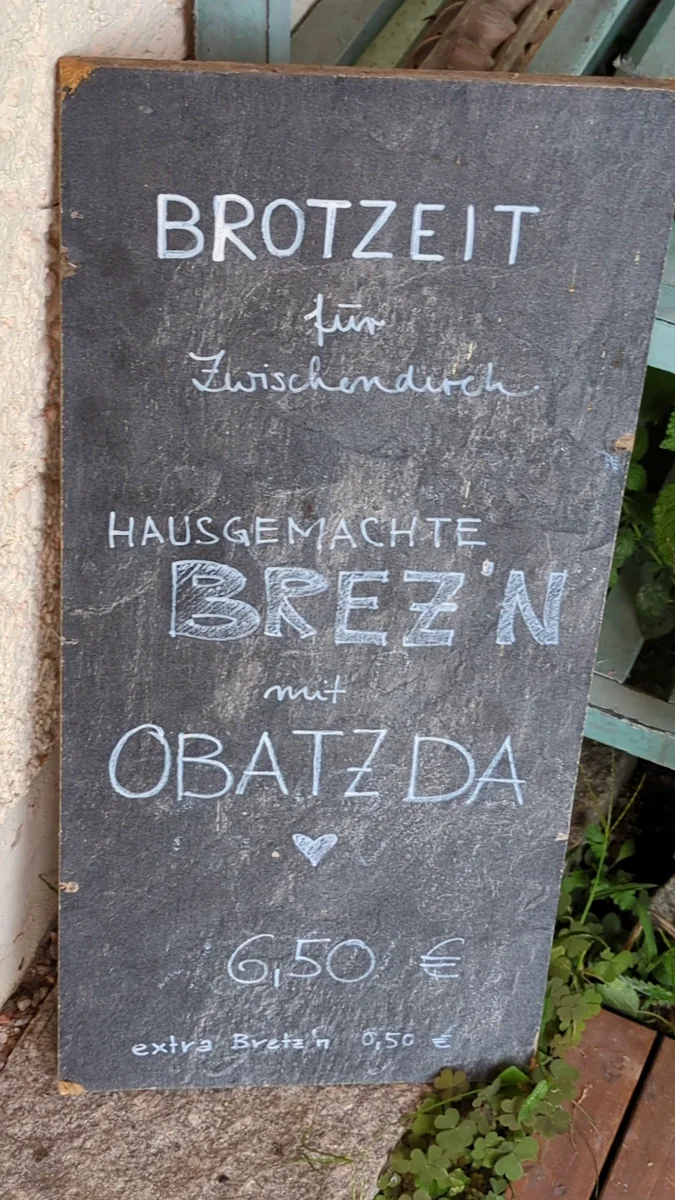 BROTZEIT
für
Zwischendurch
HAUSGEMACHTE
BREZ'N
mit
OBATZDA
6,50 €
extra Bretz'n 0,50 €